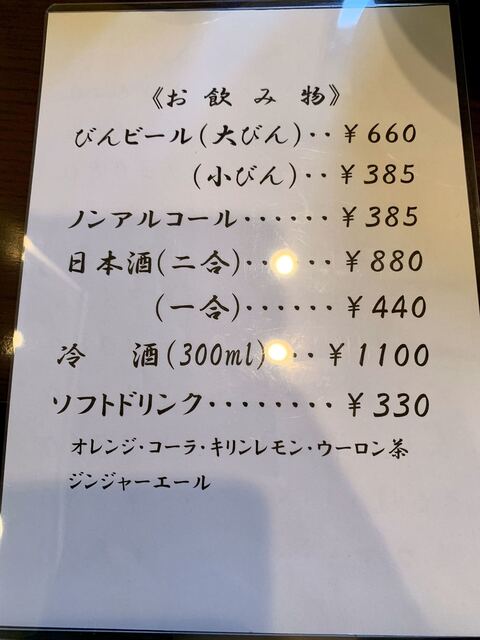 《お飲み物》
びんビール(大びん)‥￥660
(小びん)‥￥385
ノンアルコール‥‥‥￥385
日本酒(二合)‥‥‥￥880
(一合)‥‥‥￥440
冷　酒(300ml)‥‥￥1100
ソフトドリンク‥‥‥‥￥330
オレンジ・コーラ・キリンレモン・ウーロン茶
ジンジャーエール